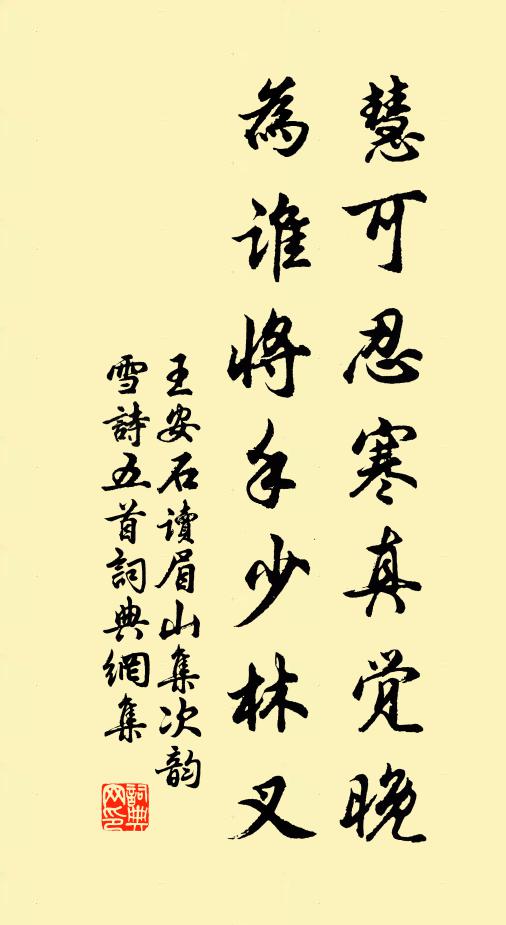 慧可忍寒真覚晚
為誰將手少林叉
王安石读眉山集次韵
雪詩五首詞典網集
詞典网印